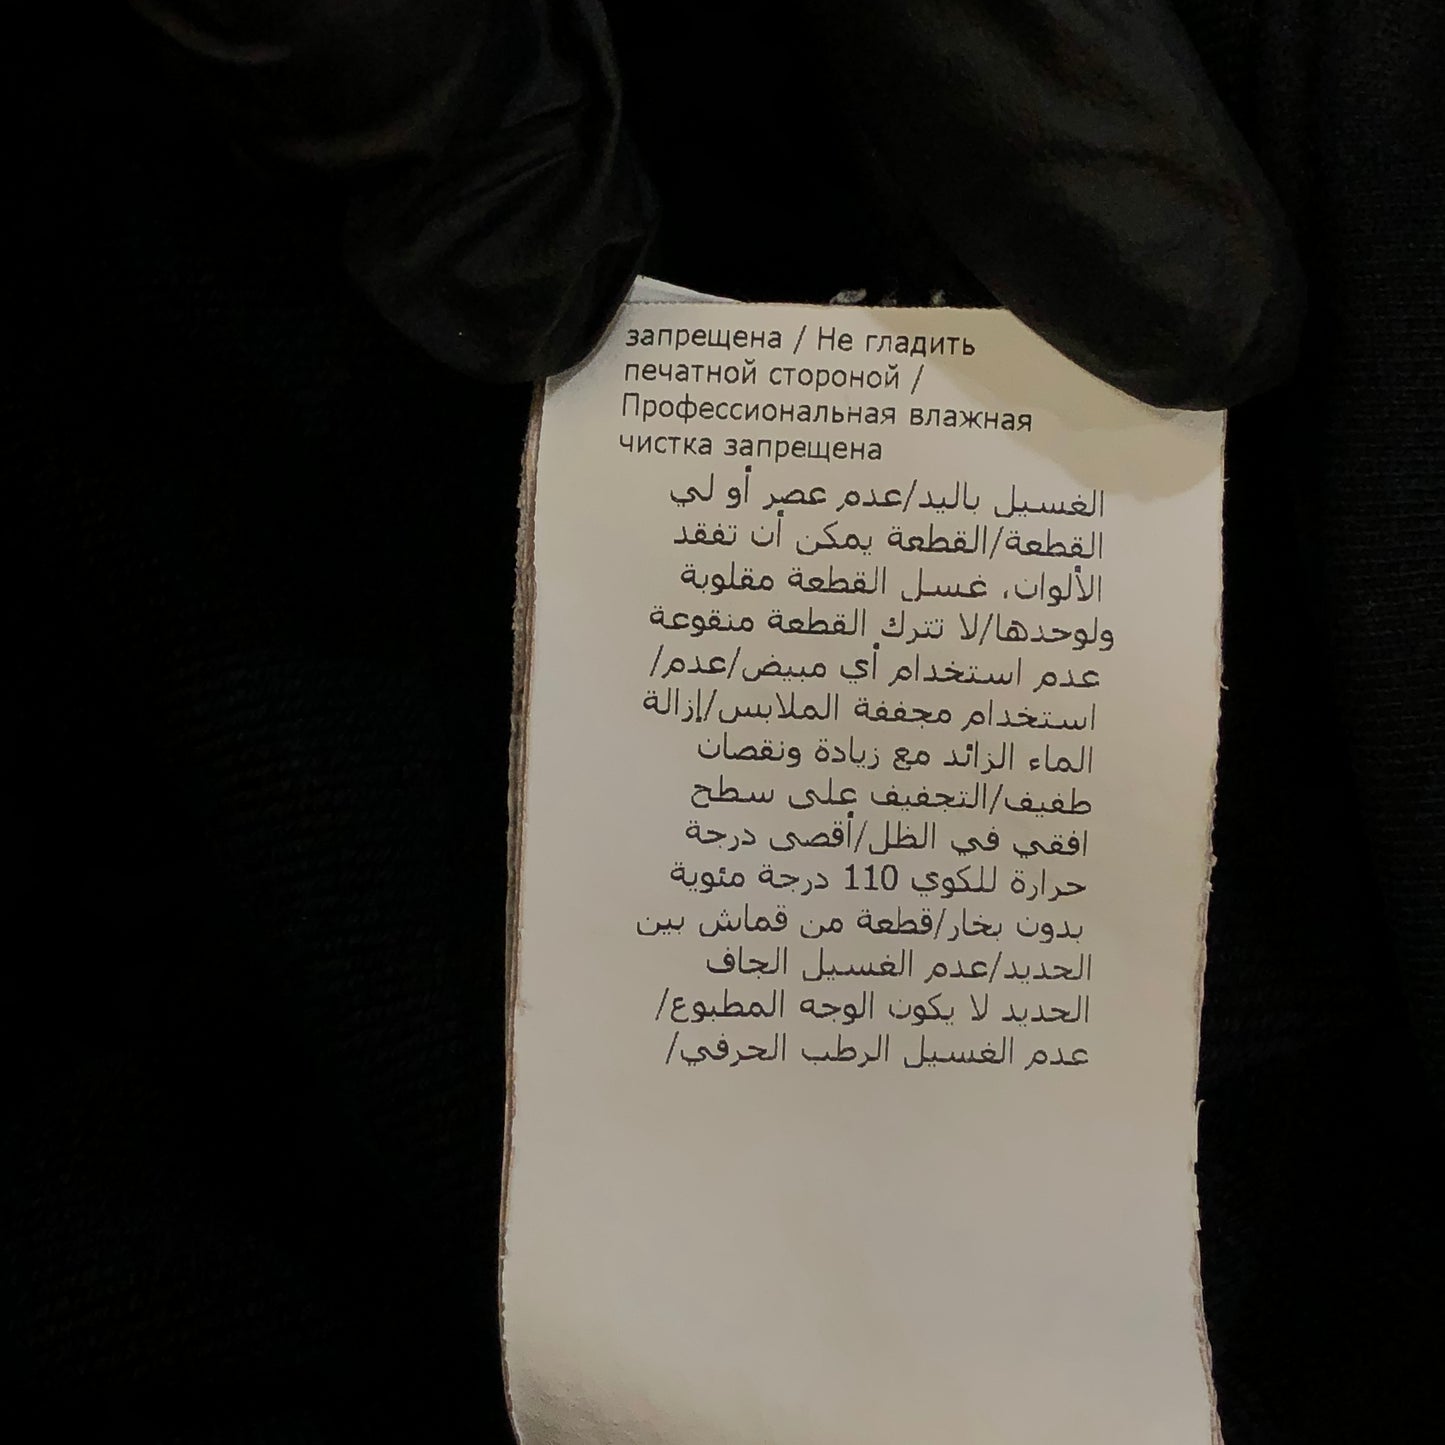 запрещена / Не гладить
печатной стороной /
Профессиональная влажная
чистка запрещена
الغسيل باليد/عدم عصر أو لي
القطعة/القطعة يمكن أن تفقد
الألوان، غسل القطعة مقلوبة
ولوحدها/لا تترك القطعة منقوعة
عدم استخدام أي مبيض/عدم/
استخدام مجففة الملابس/إزالة
الماء الزائد مع زيادة ونقصان
طفيف/التجفيف على سطح
افقي في الظل/أقصى درجة
حرارة للكوي 110 درجة مئوية
بدون بخار/قطعة من قماش بين
الحديد/عدم الغسيل الجاف
الحديد لا يكون الوجه المطبوع/
عدم الغسيل الرطب الحرفي/